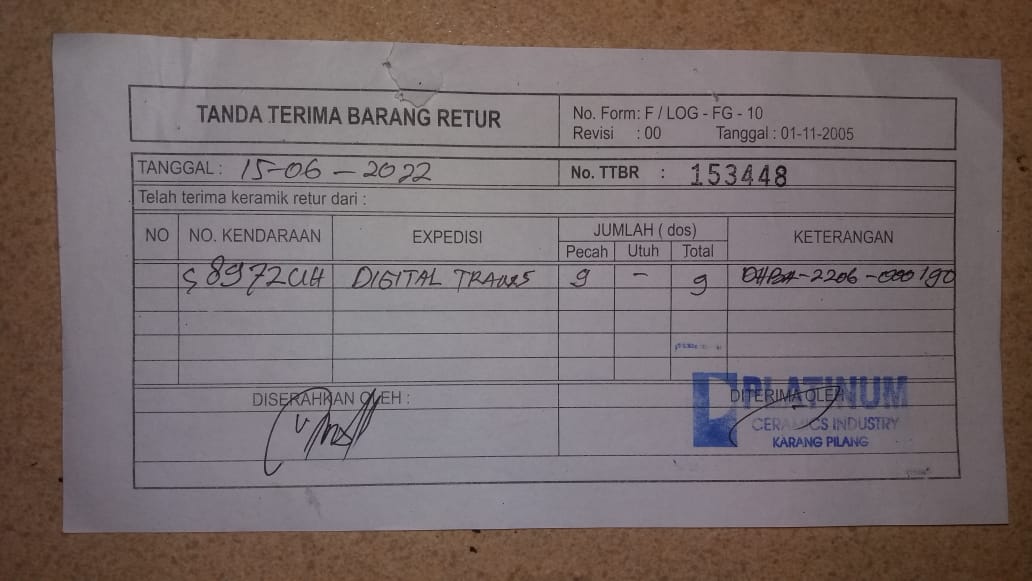 TANDA TERIMA BARANG RETUR
No. Form: F / LOG - FG - 10
Revisi : 00 Tanggal : 01-11-2005
TANGGAL : 15-06-2022
No. TTBR : 153448
Telah terima keramik retur dari :
NO NO. KENDARAAN EXPEDISI JUMLAH ( dos) KETERANGAN
Pecah Utuh Total
S 8972 UH DIGITAL TRANS 9 - 9 -2206-000190
DISERAHKAN OLEH :
DITERIMA OLEH
PLATINUM
CERAMICS INDUSTRY
KARANG PILANG